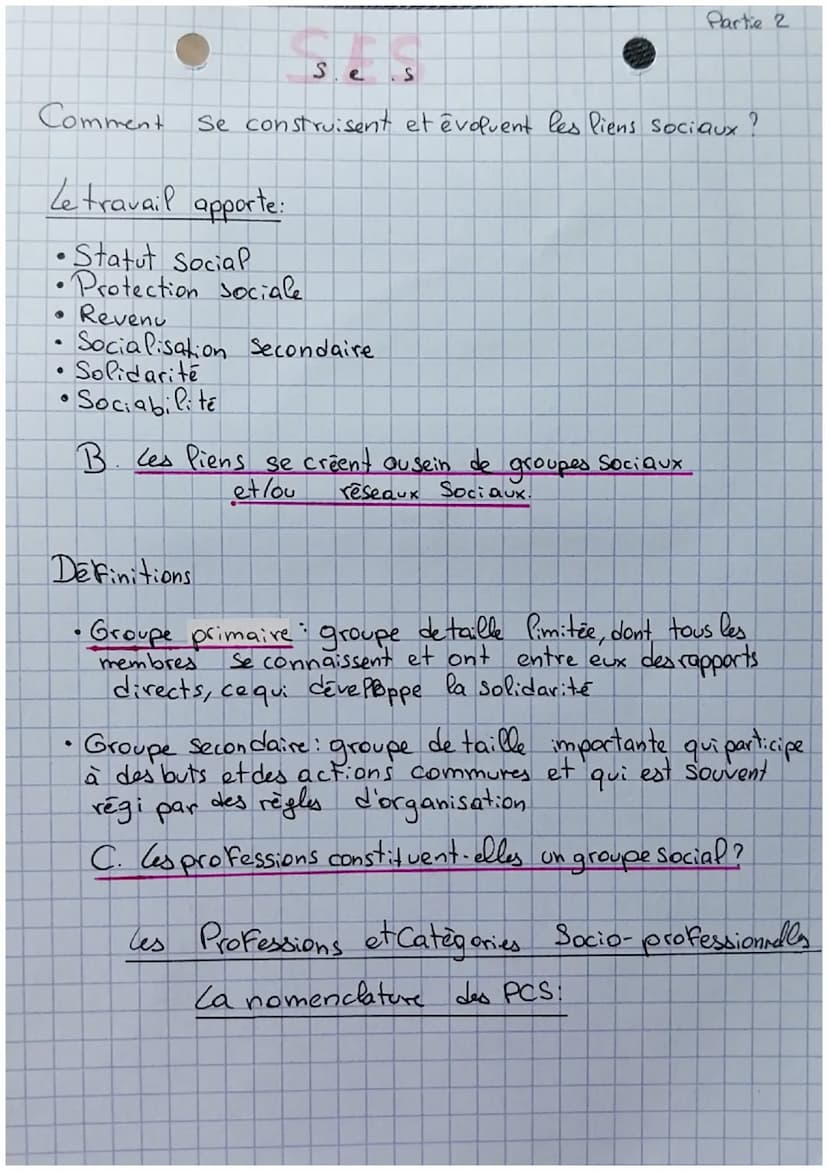 Partie 2
SES
S.e.s
Comment se construisent et évoluent les liens sociaux ?
Le travail apporte:
• Statut social
• Protection sociale
• Revenu
• Socialisation secondaire
• Solidarité
• Sociabilité
B. Les liens se créent au sein de groupes sociaux
et/ou réseaux sociaux.
Définitions
• Groupe primaire : groupe de taille limitée, dont tous les
membres se connaissent et ont entre eux des rapports
directs, ce qui développe la solidarité
• Groupe secondaire : groupe de taille importante qui participe
à des buts et des actions communes et qui est souvent
régi par des règles d'organisation
C. Les professions constituent-elles un groupe social ?
Les Professions et Catégories Socio-professionnelles
La nomenclature des PCS: